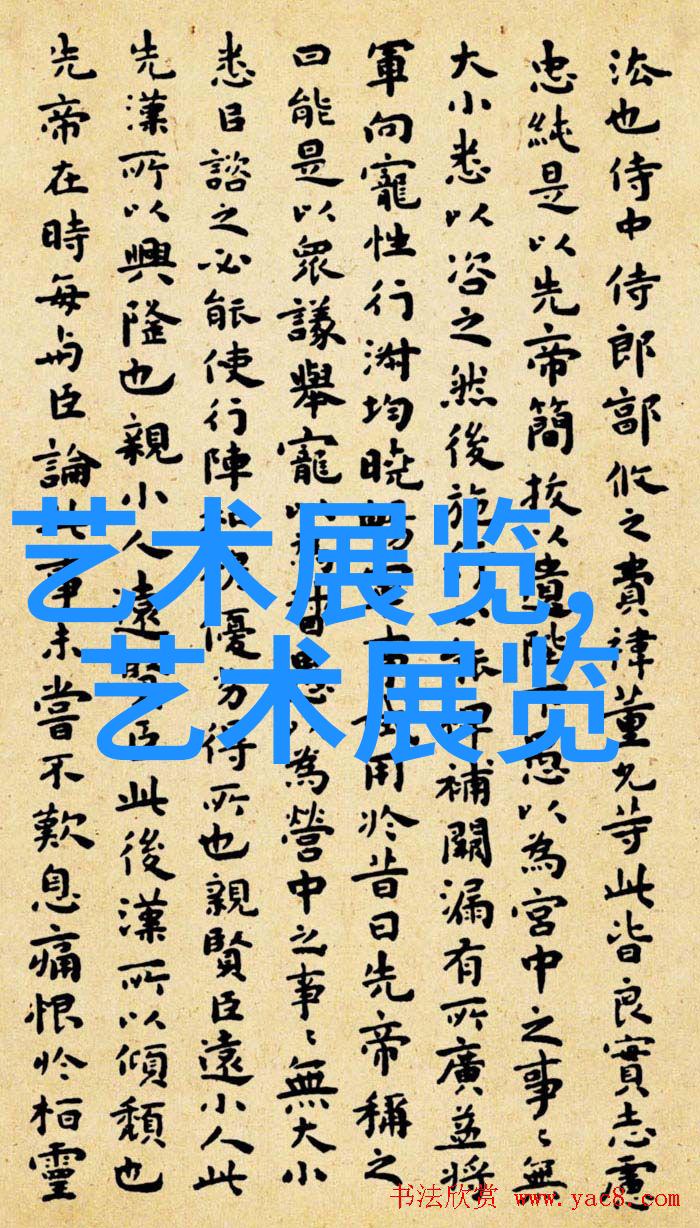 法也侍中侍郎郭攸之費禕董允等此皆良實志慮
忠純是以先帝簡拔以遺陛下愚以為宮中之事〻無
大小悉以咨之然後施行必能裨補闕漏有所廣益將
軍向寵性行淑均曉暢軍事試用於昔日先帝稱之
曰能是以眾議舉寵以為督愚以為營中之事〻無大小
悉以諮之必能使行陣和優劣得所也親賢臣遠小人此
先漢所以興隆也親小人遠賢臣此後漢所以傾頹也
先帝在時每與臣論此事未嘗不歎息痛恨於桓靈
艺术展览,
艺术展览
书法欣赏 www.yac8.com